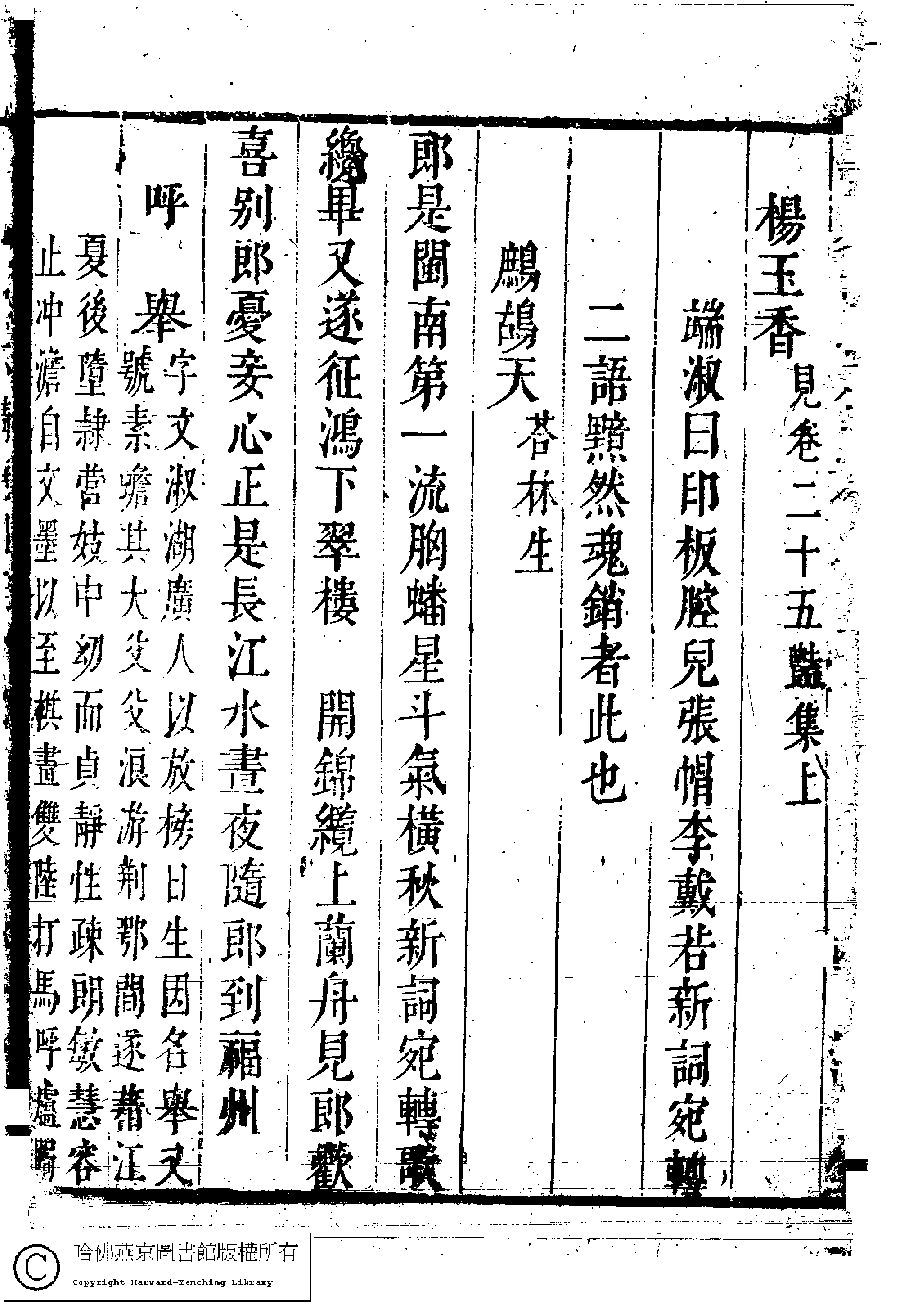 楊玉香見卷二十五豔集上
端淑曰印板腔兒張帽李戴若新詞宛轉
二語黯然魂銷者此也
鷓鴣天荅林生
郎是閩南第一流胸蟠星斗氣橫秋新詞宛轉歌
纔畢又遂征鴻下翠樓　開錦纜上蘭舟見郎歡
喜別郎憂妾心正是長江水晝夜隨郎到福州
呼舉字文淑湖廣人以放榜日生因名舉又
號素蟾其大父父浪游荆鄂間遂藉江
夏後墮隷營妓中幼而貞靜性疎朗敏慧容
止冲澹自文墨以至棋畫雙陸打馬呼盧
哈佛燕京圖書館版權所有
Copyright Harvard-Yenching Library